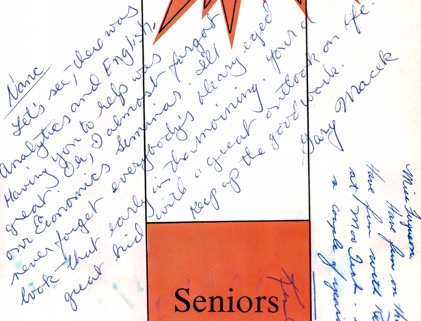 Nanc
Let's see, there was
Analytics and English.
Having you to help was
great. Oh, I almost forgot
our Economics Seminars. I'll
never forget everybody's bleary eyed
look that early in the morning. You're a
great kid with a great outlook on life.
Keep up the good work.
Gary Macek
Miss
Have fun on the
Have fun with
at Mos
a couple of years
Seniors